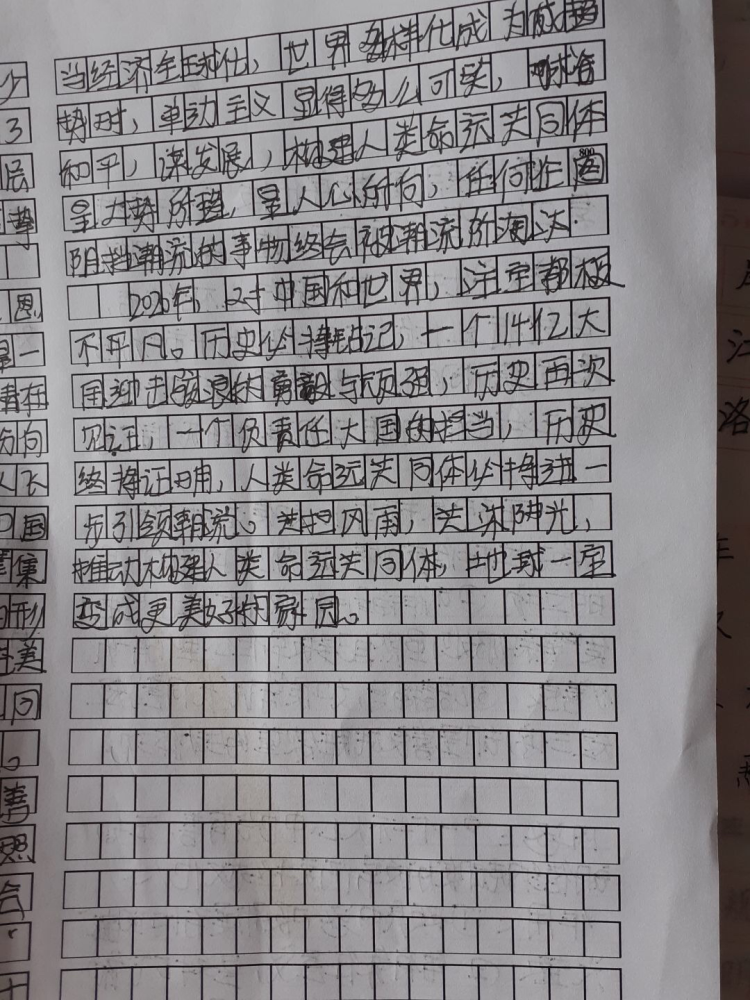 当经济全球化，世界多样化成为时趋
势时，单动主义显得多么可笑，求合
和平，谋发展，构建人类命运共同体
是大势所趋，是人心所向，任何企图
800
阴挡潮流的事物终会被潮流所淘汰.
2020年，对中国和世界，注定都极
不平凡。历史必将铭记，一个14亿大
国迎击骇浪的勇毅与顽强，历史再次
见证，一个负责任大国的担当，历史
终将证明，人类命运共同体必将进一
步引领朝流。共担风雨，共沐阳光，
推动构建人类命运共同体，地球一定
变成更美好的家园。
少
3
层
尊
恩
一
在
向
飞
国
集
形
美
同
。
善
照
会
十
江
洛